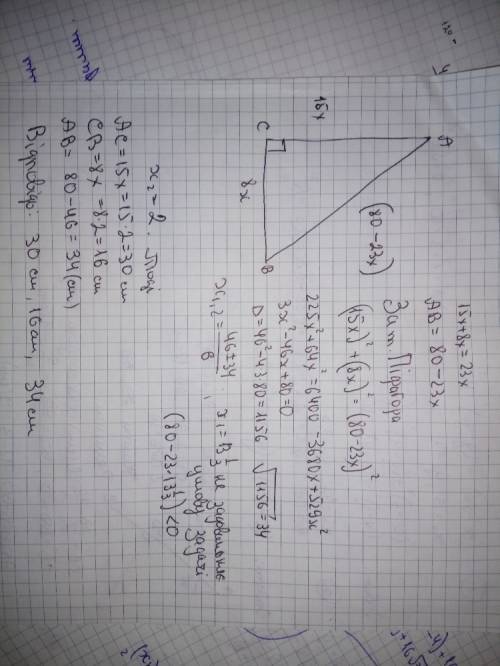 15x+8x=23x
AB = 80-23x
За т. Піфагора
(15x)²+(8x)² = (80-23x)²
225x²+64x² = 6400-3680x+529x²
3x²-46x+80=0
D=46²-4·3·80=1156 √1156=34
x₁,₂ = 46±34/6, x₁=13 1/3 не задовольняє
умову задачі
(80-23·13 1/3)<0
A
15x
(80-23x)
C
8x
B
x₂=2. Тоді
AC=15x=15·2=30 cm
CB=8x=8·2=16 cm
AB= 80-46=34(cm)
Відповідь: 30 cm, 16 cm, 34 cm